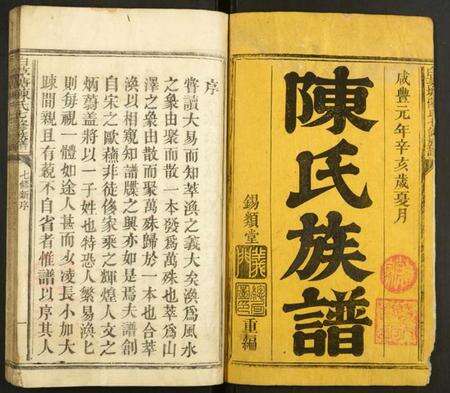 咸豐元年辛亥歲夏月
陳氏族譜
錫類堂
重編
序
嘗讀大易而知萃渙之義大矣渙爲風水
之象由聚而散一本發爲萬殊也萃爲山
澤之象由散而聚萬殊歸於一本也合萃
渙以相親知譜牒之興亦如是焉夫譜創
自宋之歐蘇非徒侈家乘之輝煌人文之
炳蔚蓋將以一子姓也特恐人繁易渙匕
則每視一體如途人甚而以凌長小加大
踈間親且有親不自省者惟譜以序其人
七修 序